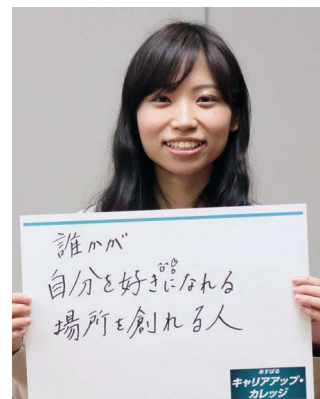 誰かが
自分を好きになれる
場所を創れる人
あすばる
キャリアアップ・
カレッジ